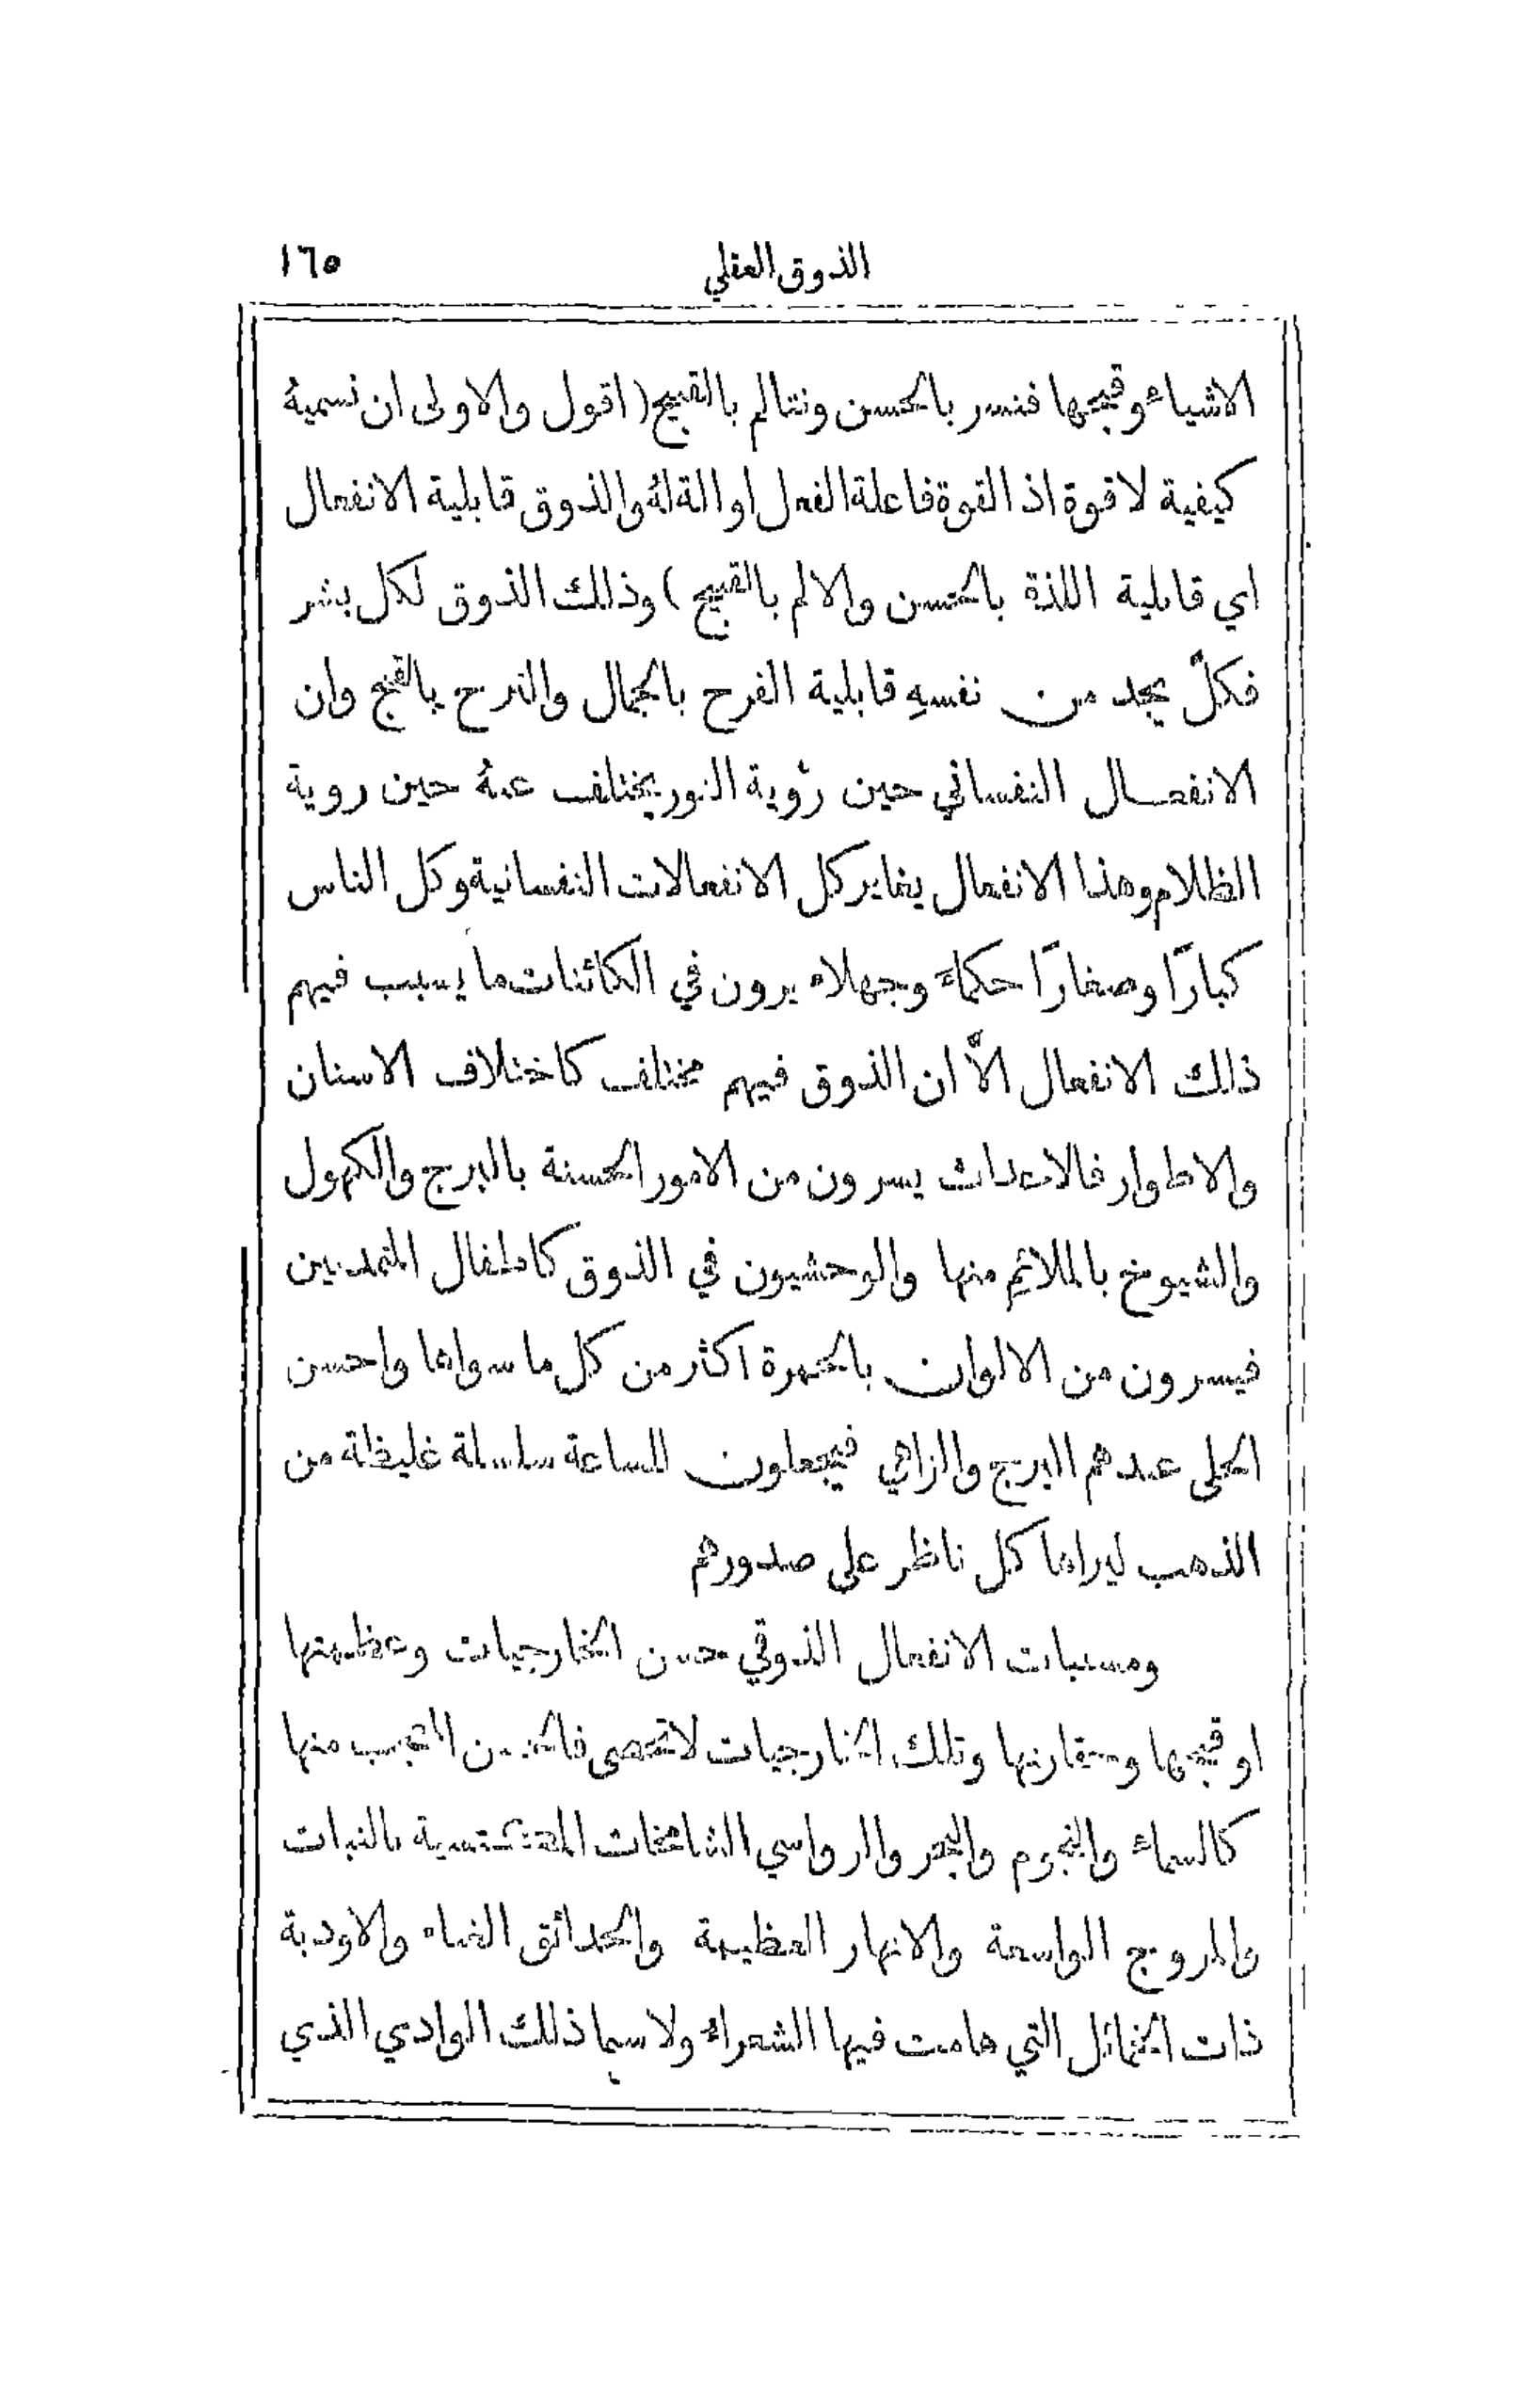 الذوق العقلي ١٦٥
الاشياء وقبيحها فنسر بالحسن ونتالم بالقبيح (اقول والاولى ان نسميهُ
كيفية لا قوة اذ القوة فاعلة الفعل او الة لهُ والذوق قابلية الانفعال
اي قابلية اللذة بالحسن والالم بالقبيح) وذلك الذوق لكل بشر
فكلٌ يجد من نفسهِ قابلية الفرح بالجمال والترح بالقبح وان
الانفعال النفساني حين رؤية النور يختلف عنهُ حين روية
الظلام وهذا الانفعال يغاير كل الانفعالات النفسانية وكل الناس
كبارًا وصغارًا حكماءَ وجهلاء يرون في الكائنات ما يسبب فيهم
ذلك الانفعال الاَّ ان الذوق فيهم مختلف كاختلاف الاسنان
والاطوار فالاحداث يسرون من الامور الحسنة بالبرج والكهول
والشيوخ بالملائمِ منها والوحشيون في الذوق كاطفال المتمدنين
فيسرون من الالوان بالحمرة اكثر من كل ما سواها واحسن
الحلى عندهم البرج والزاهي فيجعلون للساعة سلسلة غليظة من
الذهب ليراها كل ناظر على صدورهم
ومسببات الانفعال الذوقي حسن الخارجيات وعظمتها
او قبيحها وحقارتها وتلك الخارجيات لا تحصى فالحسن المعجب منها
كالسماء والنجوم والبحر والرواسي الشامخات المكتسية بالنبات
والمروج الواسعة والانهار العظيمة والحدائق الغناء والاودية
ذات الخمائل التي هامت فيها الشعراء ولا سيما ذلك الوادي الذي